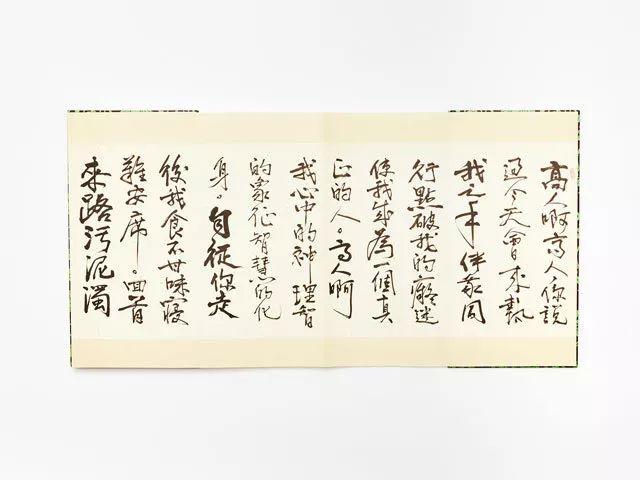 高人啊高人你說
過今天會來執
我之手伴我同
行點破我的癡迷
使我成為一個真
正的人。高人啊
我心中的神理智
的象征智慧的化
身。自從你走
後我食不甘味寢
難安席。回首
來路污泥濁